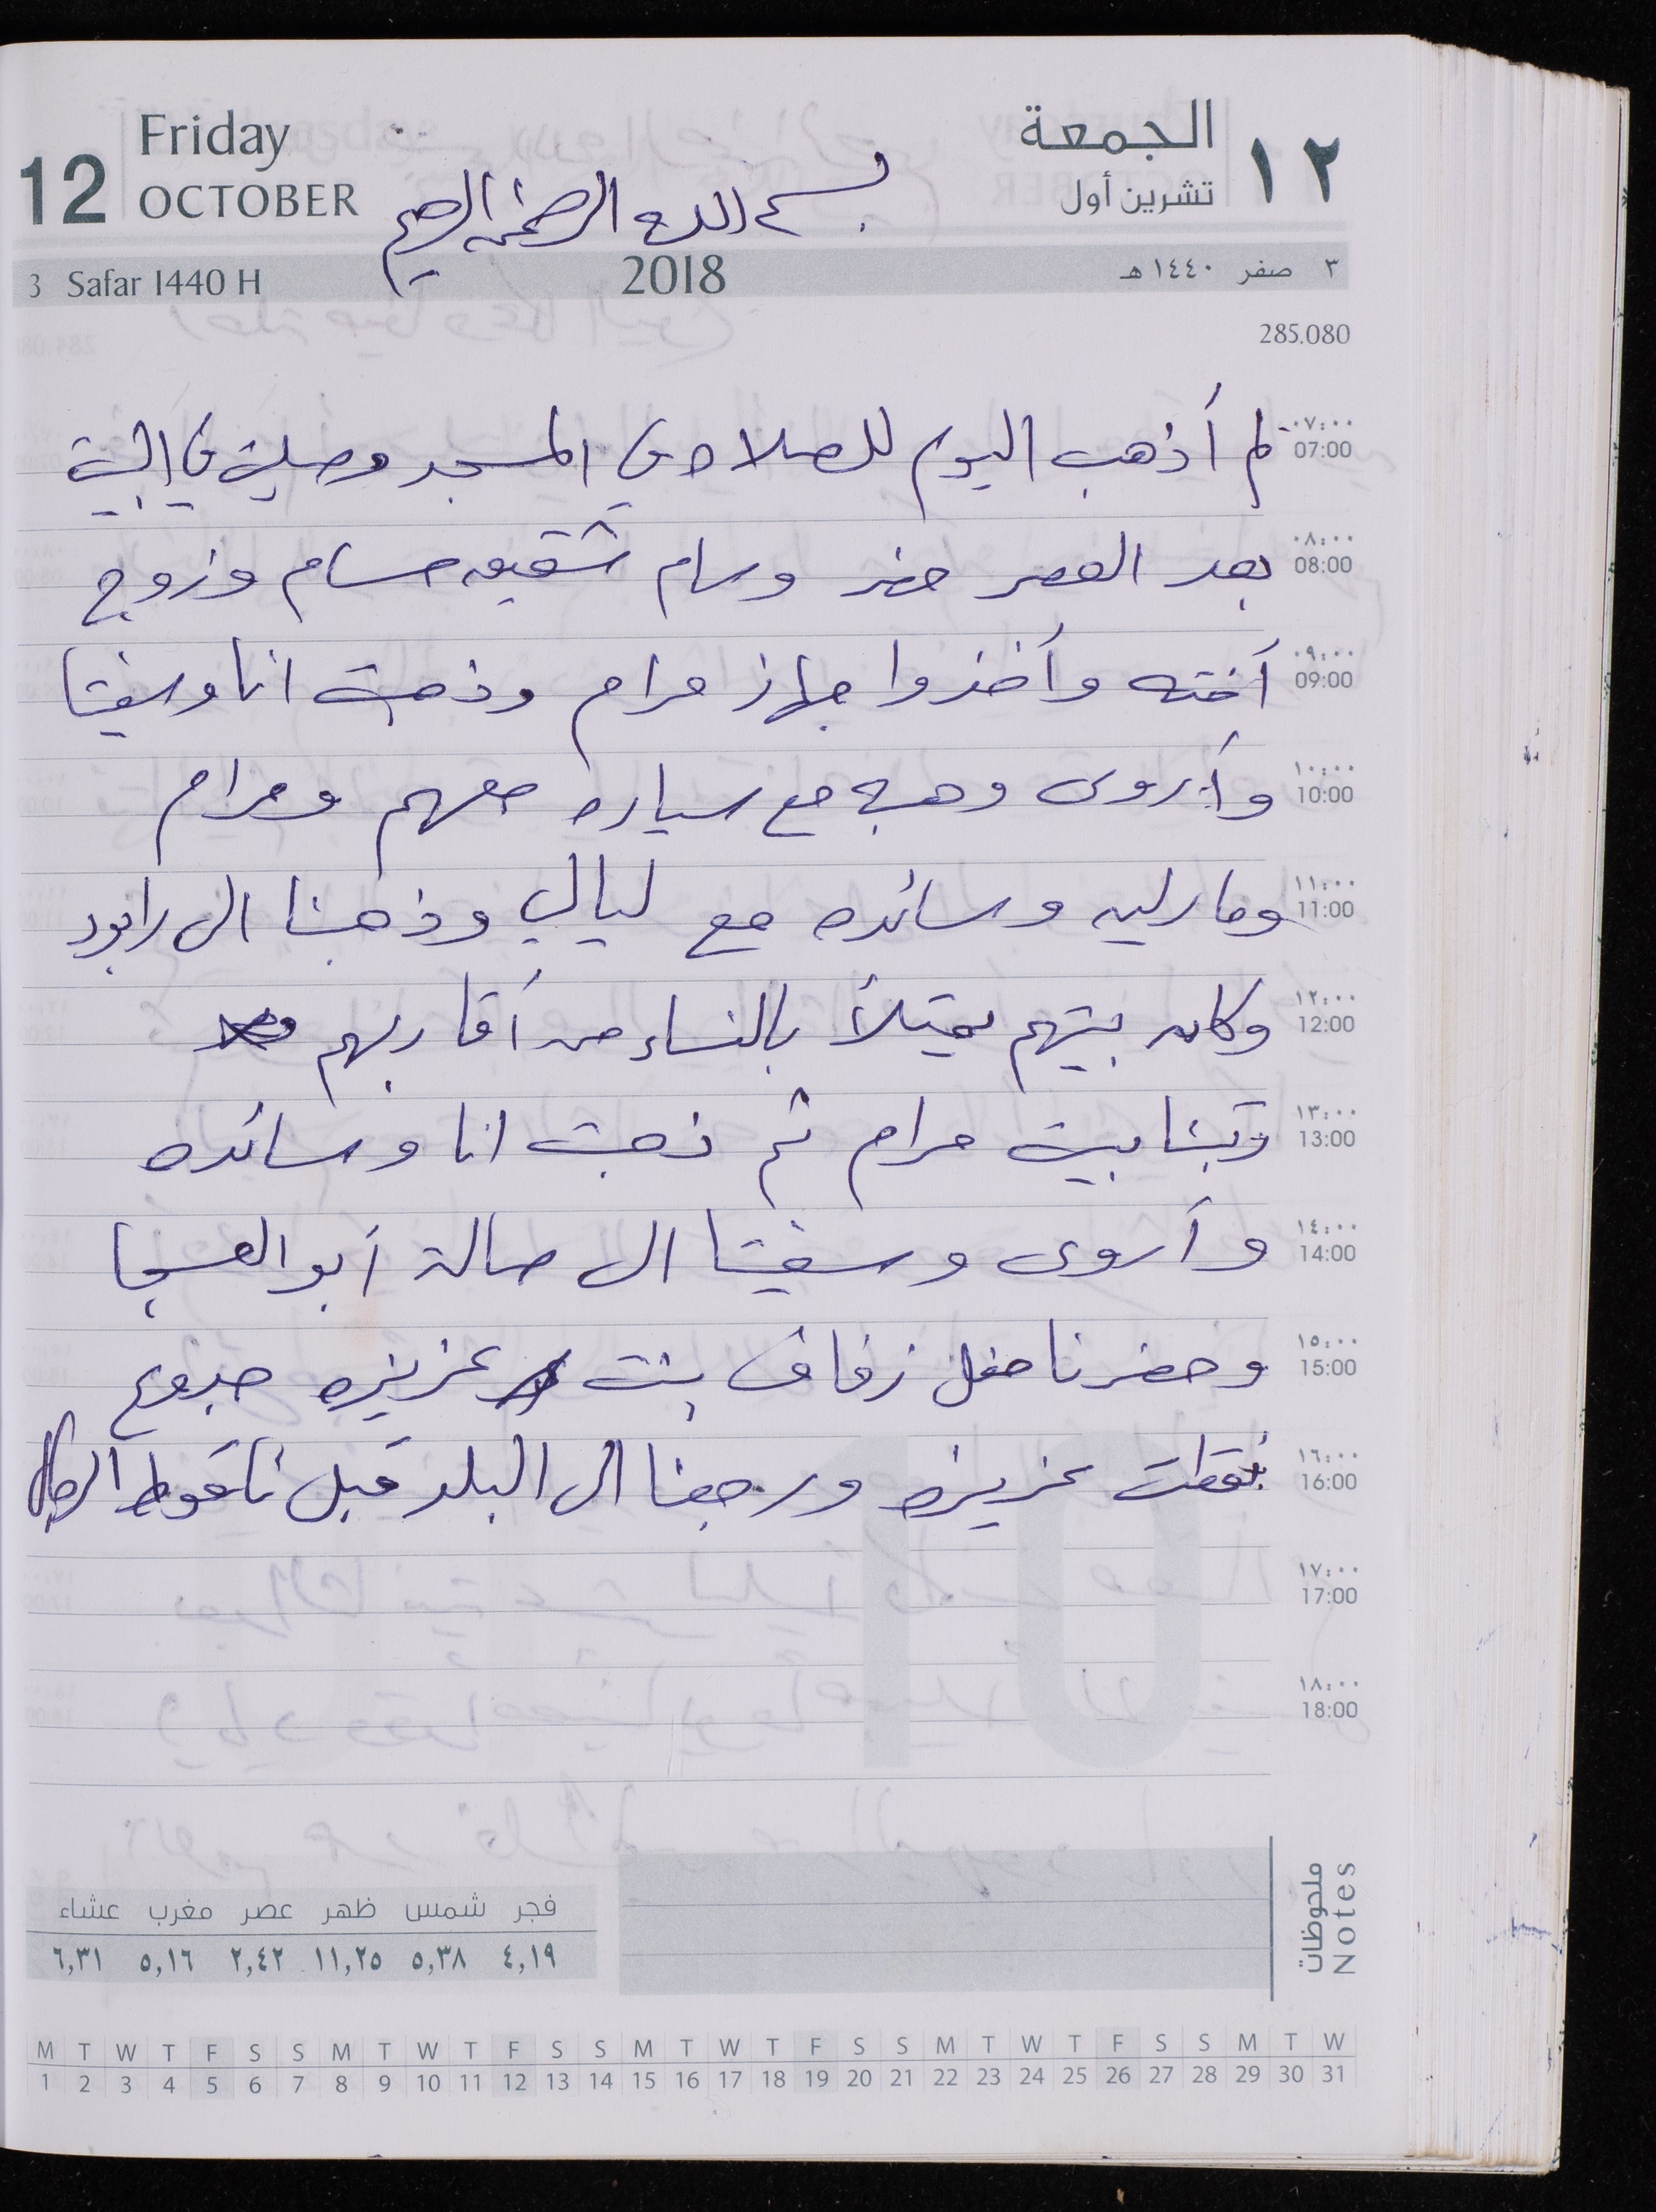 12 Friday OCTOBER
الجمعة ١٢
تشرين أول
بسم الله الرحمن الرحيم
3 Safar 1440 H 2018 ٣ صفر ١٤٤٠ هـ
285.080
٠٧:٠٠ 07:00 لم أذهب اليوم للصلاة في المسجد وصليت في البيت
٠٨:٠٠ 08:00 بعد العصر حضر وسام شقيقه حسام وزوج
٠٩:٠٠ 09:00 أخته وأخذوا جهاز مرام وذهبت انا وسفيتا
١٠:٠٠ 10:00 وأروى وهبه مع سياره معهم ومرام
١١:٠٠ 11:00 ومارليه وسائده مع ليالي وذهبنا الى رابود
١٢:٠٠ 12:00 وكان بيتهم يمتلأ بالنساء من أقاربهم
١٣:٠٠ 13:00 رتبنا بيت مرام ثم ذهبت انا وسائده
١٤:٠٠ 14:00 وأروى وسفيتا الى صالة أبو العسجا
١٥:٠٠ 15:00 وحضرنا حفل زفاف بنت عزيزه جدوع
١٦:٠٠ 16:00 نقطت عزيزه ورجعنا الى البلد قبل نا نقوط الرجال
١٧:٠٠ 17:00
١٨:٠٠ 18:00
ملحوظات Notes
فجر شمس ظهر عصر مغرب عشاء
٤,١٩ ٥,٣٨ ١١,٢٥ ٢,٤٢ ٥,١٦ ٦,٣١
M T W T F S S M T W T F S S M T W T F S S M T W T F S S M T W
1 2 3 4 5 6 7 8 9 10 11 12 13 14 15 16 17 18 19 20 21 22 23 24 25 26 27 28 29 30 31